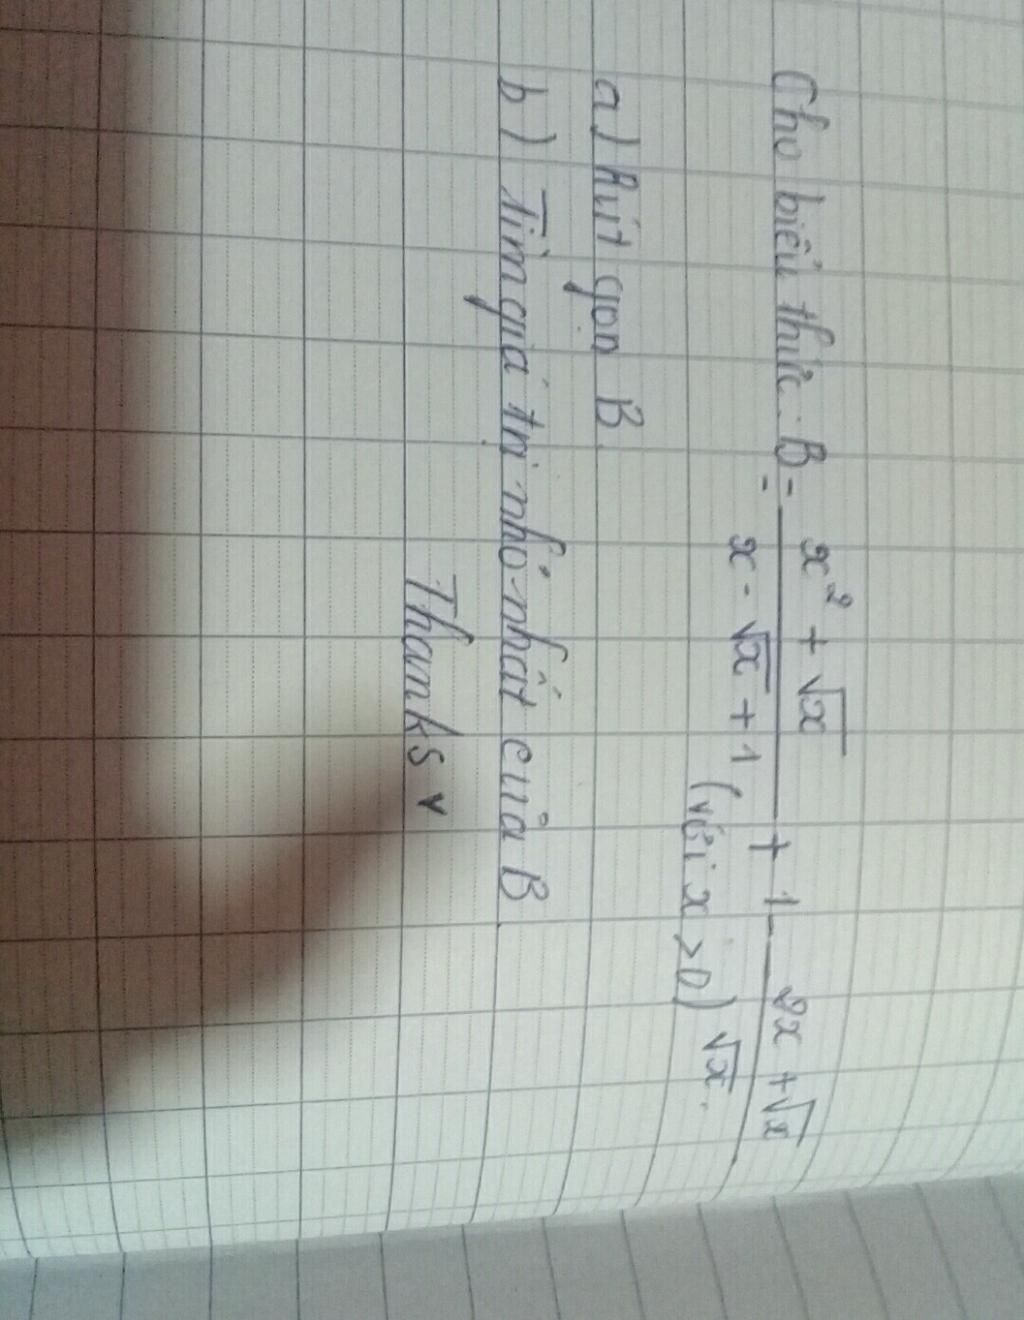 Cho biểu thức: B = \frac{x^2 + \sqrt{x}}{x - \sqrt{x} + 1} + 1 - \frac{2x + \sqrt{x}}{\sqrt{x}}.
(với x > 0)
a) Rút gọn B.
b) Tìm giá trị nhỏ nhất của B
Thanks v